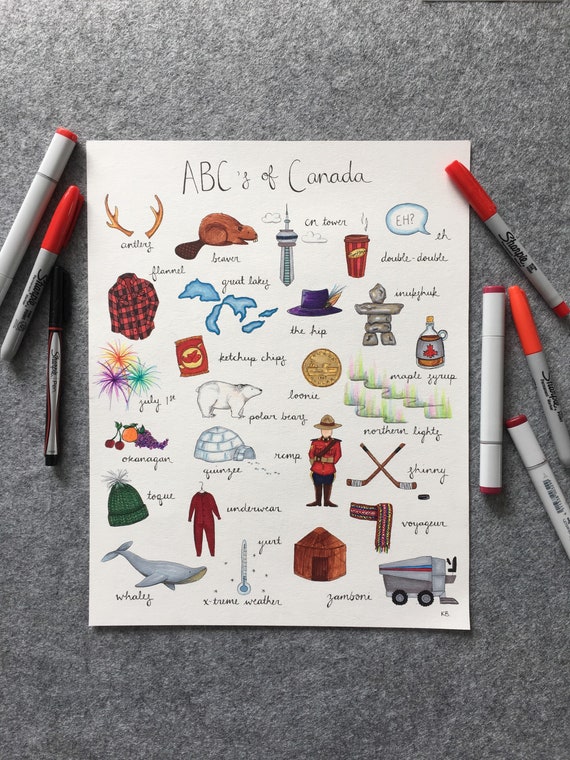 ABC's of Canada
antlers
beaver
cn tower
EH?
eh
double-double
flannel
great lakes
inukshuk
the hip
ketchup chips
maple syrup
july 1st
loonie
polar bears
northern lights
okanagan
quinzee
rcmp
shinny
toque
underwear
voyageur
yurt
whales
x-treme weather
zamboni
KB.
Sharpie
Sharpie
Sharpie
Sharpie